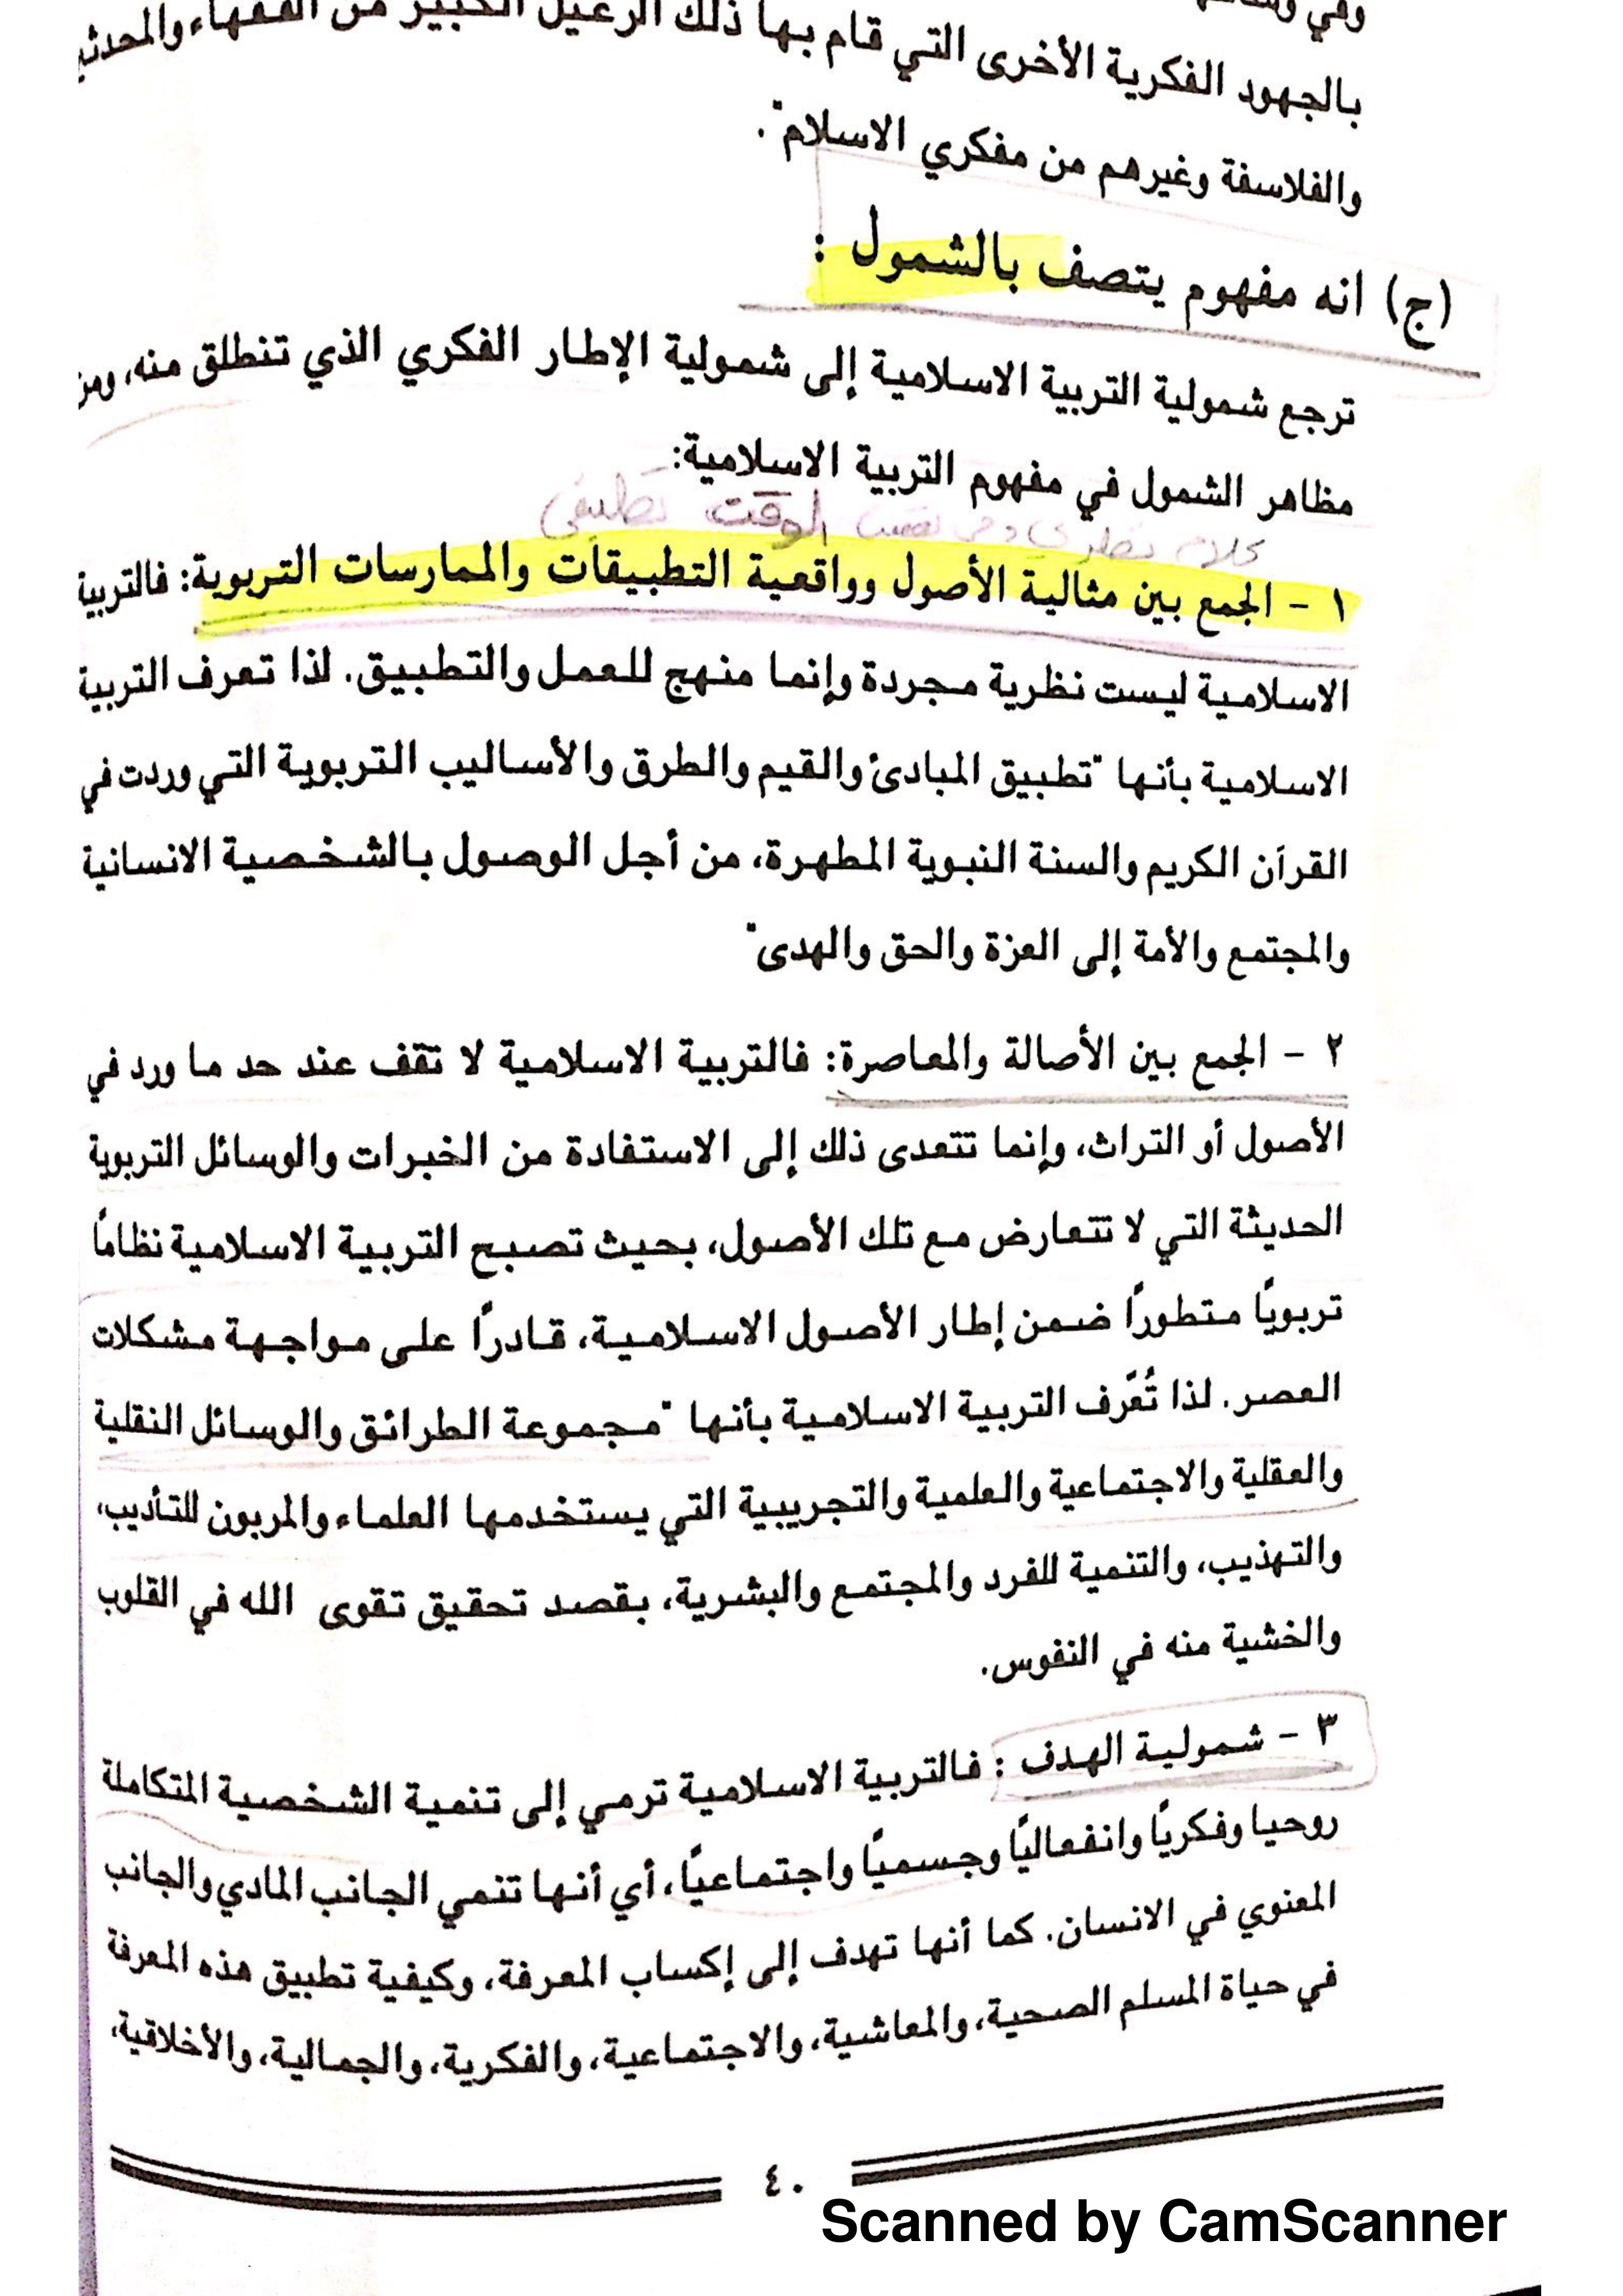 وفي
بالجهود الفكرية الأخرى التي قام بها ذلك الرعيل الكبير من الفقهاء والمحدثي
والفلاسفة وغيرهم من مفكري الاسلام".
(ج) انه مفهوم يتصف بالشمول :
ترجع شمولية التربية الاسلامية إلى شمولية الإطار الفكري الذي تنطلق منه، ومن
مظاهر الشمول في مفهوم التربية الاسلامية:
كلام نظري وفي نفس الوقت تطبيقي
١ - الجمع بين مثالية الأصول وواقعية التطبيقات والممارسات التربوية: فالتربية
الاسلامية ليست نظرية مجردة وإنما منهج للعمل والتطبيق. لذا تعرف التربية
الاسلامية بأنها "تطبيق المبادئ والقيم والطرق والأساليب التربوية التي وردت في
القرآن الكريم والسنة النبوية المطهرة، من أجل الوصول بالشخصية الانسانية
والمجتمع والأمة إلى العزة والحق والهدى"
٢ - الجمع بين الأصالة والمعاصرة: فالتربية الاسلامية لا تقف عند حد ما ورد في
الأصول أو التراث، وإنما تتعدى ذلك إلى الاستفادة من الخبرات والوسائل التربوية
الحديثة التي لا تتعارض مع تلك الأصول، بحيث تصبح التربية الاسلامية نظامًا
تربويًا متطورًا ضمن إطار الأصول الاسلامية، قادرًا على مواجهة مشكلات
العصر. لذا تُعَّرف التربية الاسلامية بأنها "مجموعة الطرائق والوسائل النقلية
والعقلية والاجتماعية والعلمية والتجريبية التي يستخدمها العلماء والمربون للتأديب،
والتهذيب، والتنمية للفرد والمجتمع والبشرية، بقصد تحقيق تقوى الله في القلوب
والخشية منه في النفوس.
٣ - شمولية الهدف : فالتربية الاسلامية ترمي إلى تنمية الشخصية المتكاملة
روحيا وفكريًا وانفعاليًا وجسميًا واجتماعيًا، أي أنها تنمي الجانب المادي والجانب
المعنوي في الانسان. كما أنها تهدف إلى إكساب المعرفة، وكيفية تطبيق هذه المعرفة
في حياة المسلم الصحية، والمعاشية، والاجتماعية، والفكرية، والجمالية، والأخلاقية،
٤٠
Scanned by CamScanner